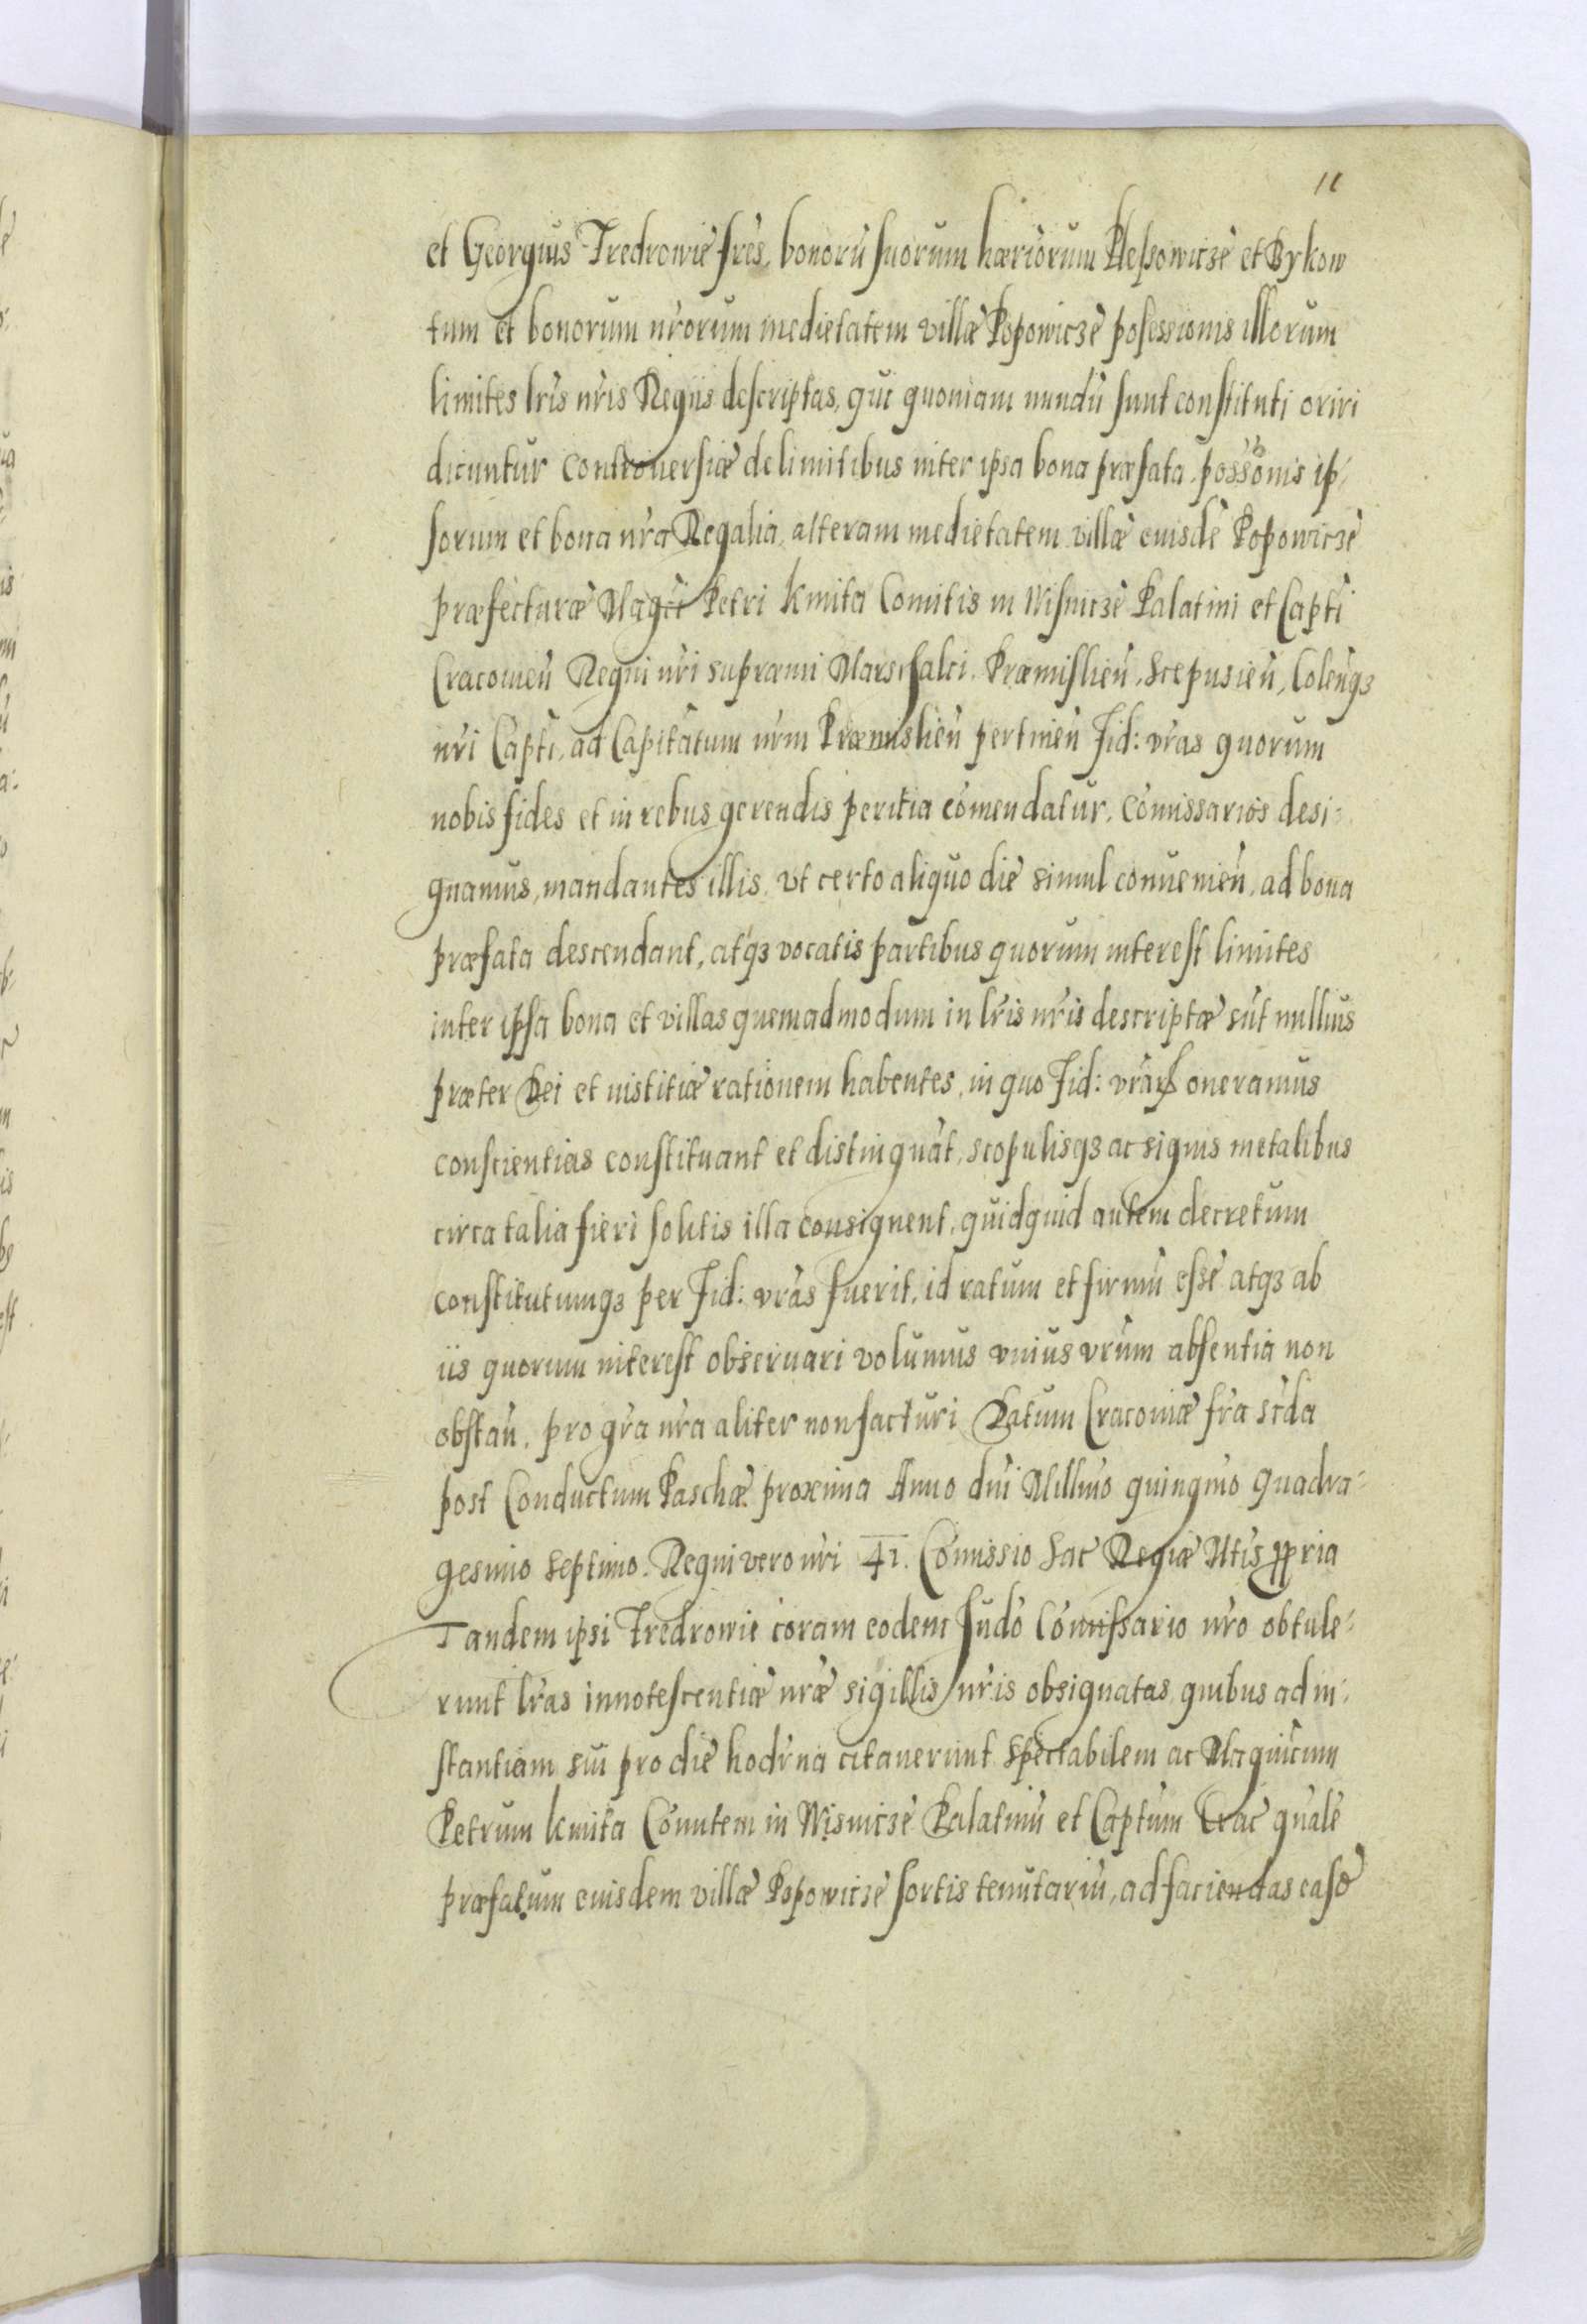 11
et Georgius Fredrowie frēs, bonorū suorum hæriorum Plessowicze et Bykow
tum et bonorum nr̄orum medietatem villæ Popowicze posessionis illorum
limites lr̄is nr̄is Regiis descriptas, qui quoniam nundū sunt constituti oriri
dicuntur controuersiæ de limitibus inter ipsa bona præfata, possōnis ip-
sorum et bona nr̄a Regalia, alteram medietatem villæ euisdē Popowicze
præfecturæ Magc̄i Petri Kmita Comitis in Wisnicze Palatini et Capt̄i
Cracouieñ Regni nr̄i supræmi Marschalci, Præmislieñ, Scepusieñ, Coleñqȝ
nr̄i Capt̄i, ad Capit̄atum nr̄m Præmislieñ pertineñ Fid: vr̄as quorum
nobis fides et in rebus gerendis peritia cōmendatur, Cōmissarios desi-
gnamus, mandantes illis, vt certo aliquo die simul conuenieñ, ad bona
præfata descendant, atqȝ vocatis partibus quorum interest limites
inter ipsa bona et villas quemadmodum in lr̄is nr̄is descriptæ sūt nullius
præter Dei et iustitiæ rationem habentes, in quo Fid: vr̄ar̄ oneramus
conscientias constituant et distinguāt, scopulisqȝ ac signis metalibus
circa talia fieri solitis illa consignent, quidquid autem decretum
constitutumqȝ per Fid: vr̄as fuerit, id ratum et firmū esse atqȝ ab
iis quorum interest obseruari volumus vnius vr̄um absentia non
obstañ, pro gr̄a nr̄a aliter non facturi Datum Cracouiæ fr̄a sc̄da
post Conductum Paschæ proxima Anno dn̄i Millmo quingmo Quadra-
gesimo septimo. Regni vero nr̄i 41. Cōmissio Sac Regiæ Mtis ppria
Tandem ipsi Fredrowie coram eodem Sudō Cōmissario nr̄o obtule-
runt lr̄as innotescentiæ nr̄æ sigillis nr̄is obsignatas quibus ad in-
stantiam sui pro die hodr̄na citauerunt Spectabilem ac Magnīcum
Petrum Kmita Comitem in Wisnicze Palatinū et Captum Crac̄ quale
præfatum euisdem villæ Popowicze sortis tenutariū, ad faciendas easde